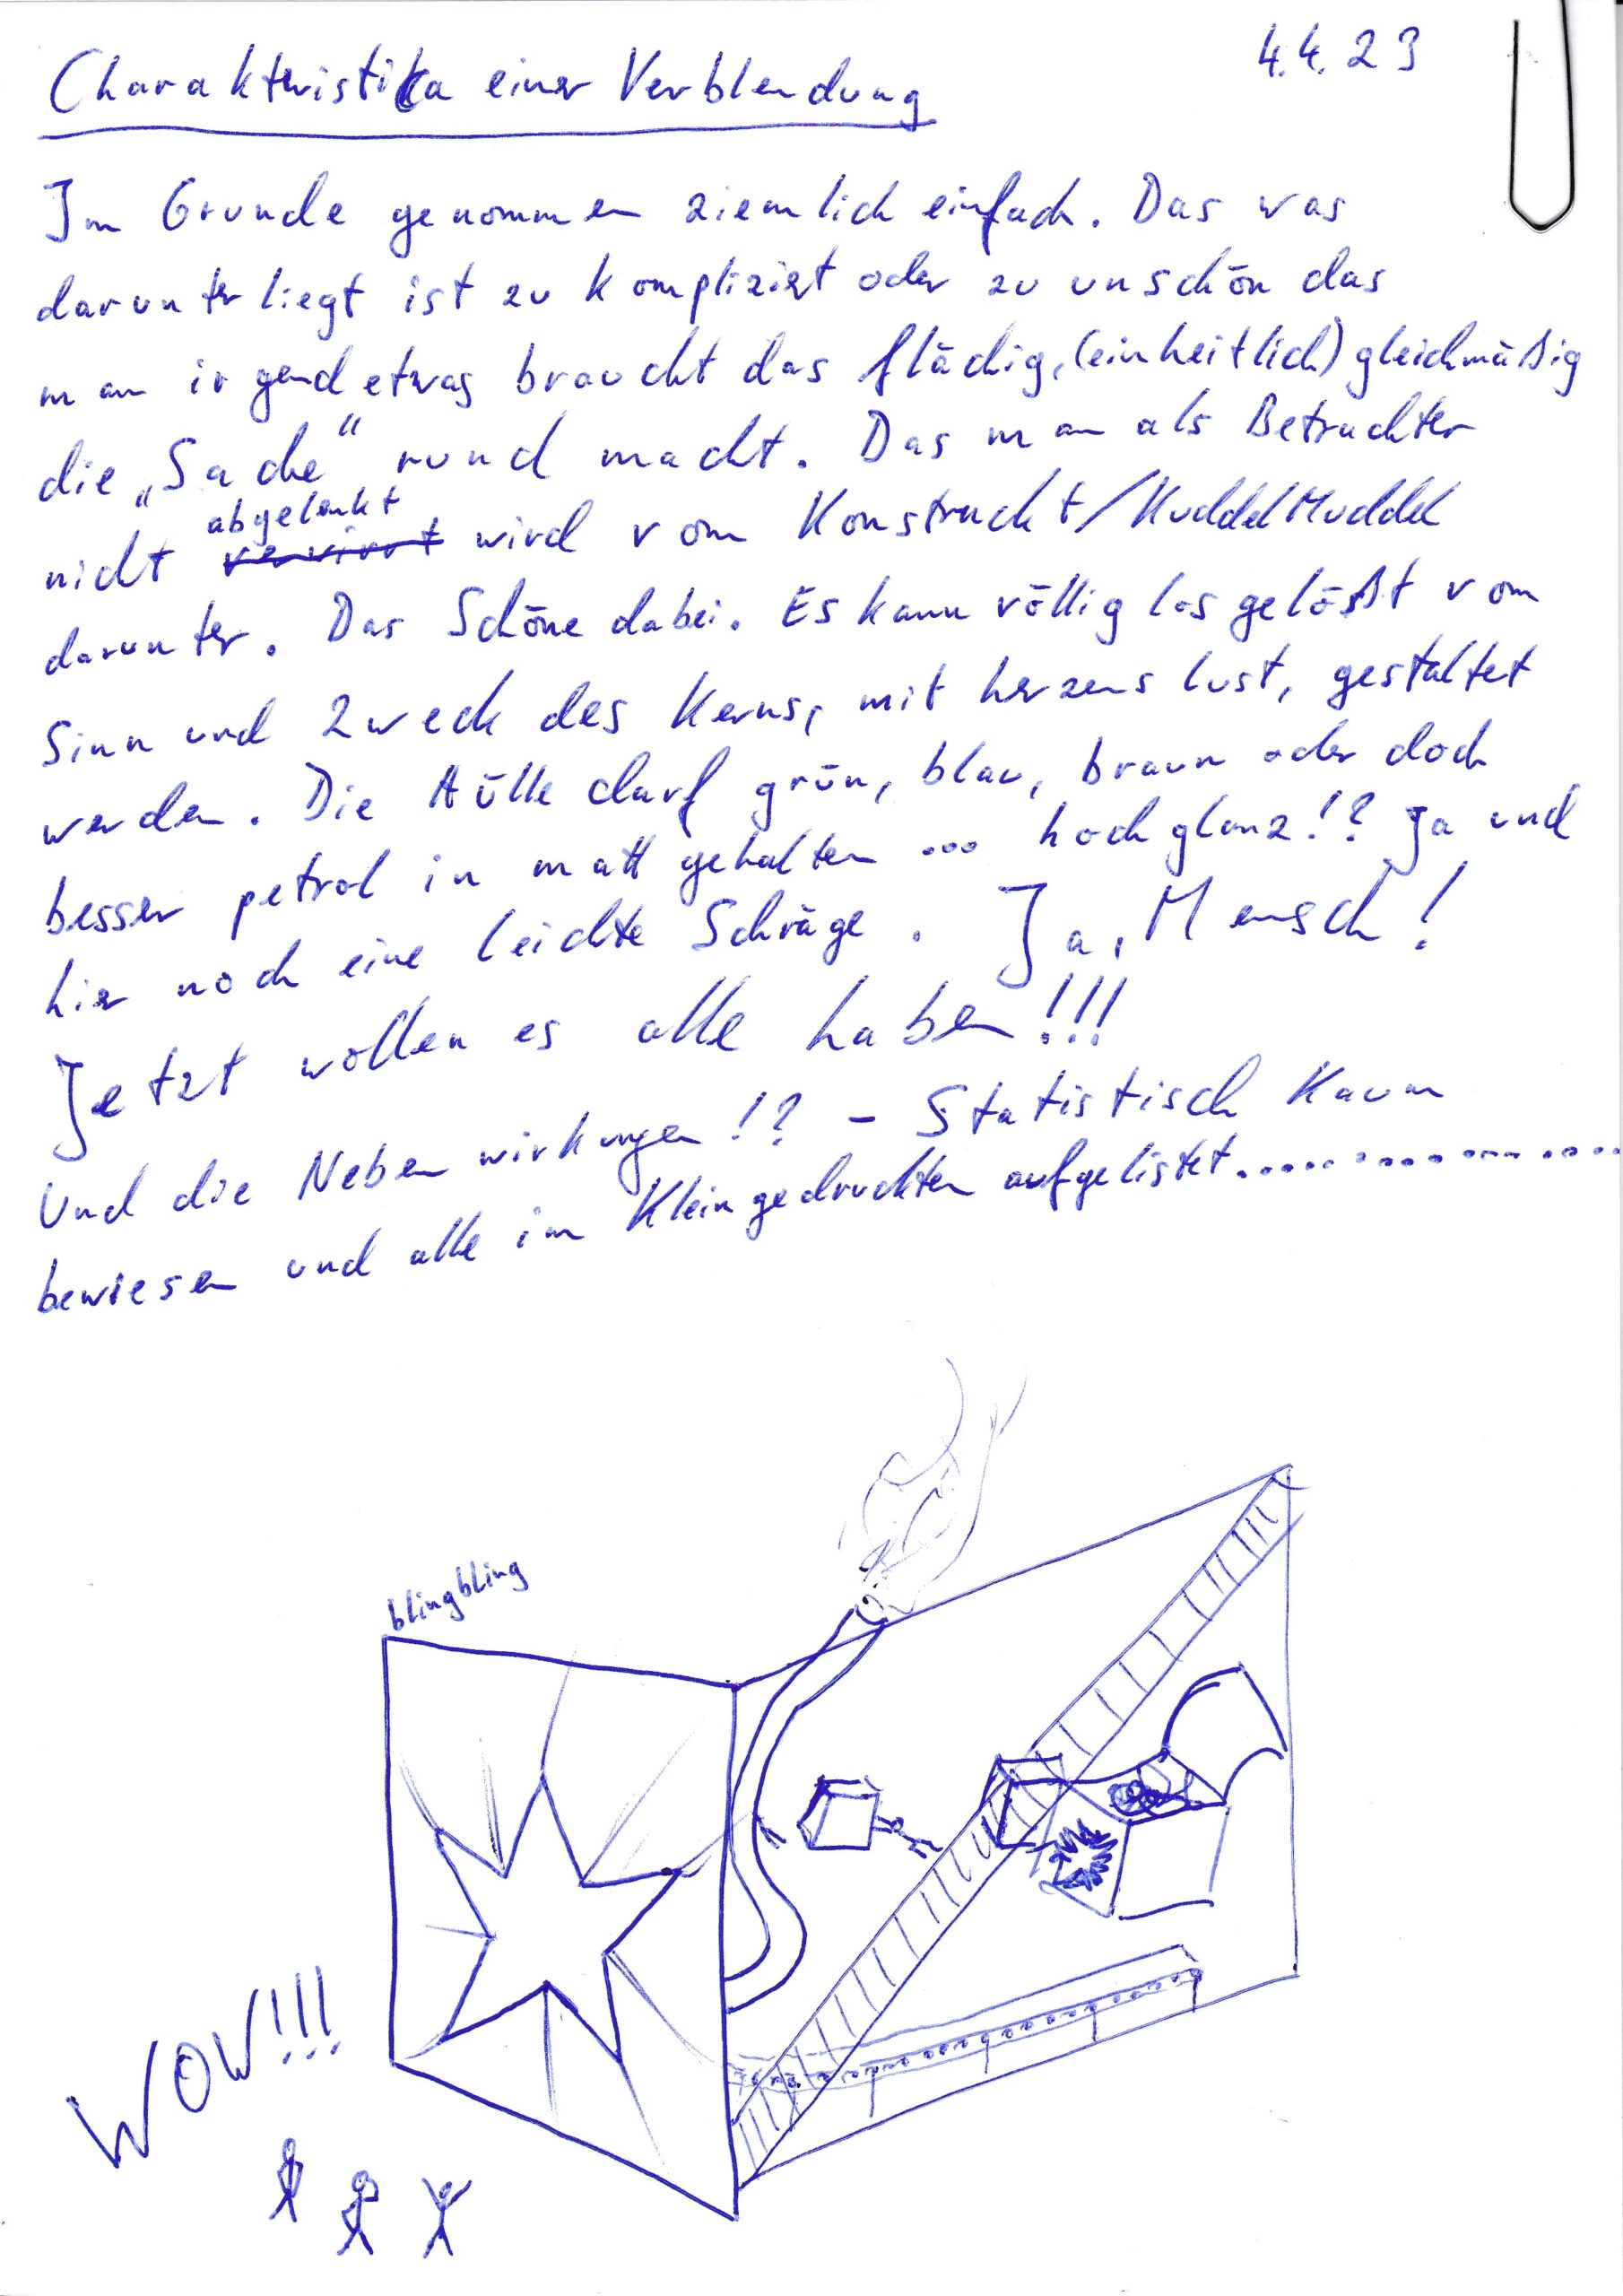 4.4.23
Charakteristika einer Verblendung
Im Grunde genommen ziemlich einfach. Das was
darunter liegt ist zu kompliziert oder zu unschön das
man irgendetwas braucht das flächig, (einheitlich) gleichmäßig
die „Sache“ rund macht. Das man als Betrachter
abgelenkt
nicht verwirrt wird vom Konstruckt/KuddelMuddel
darunter. Das Schöne dabei. Es kann völlig losgelößt vom
Sinn und Zweck des Kerns, mit herzens lust, gestaltet
werden. Die Hülle darf grün, blau, braun oder doch
besser petrol in matt gehalten ... hochglanz!? Ja und
hier noch eine leichte Schräge. Ja, Mensch!
Jetzt wollen es alle haben!!!
Und die Nebenwirkungen!? - Statistisch kaum
bewiesen und alle im Kleingedruckten aufgelistet....................
blingbling
WOW!!!